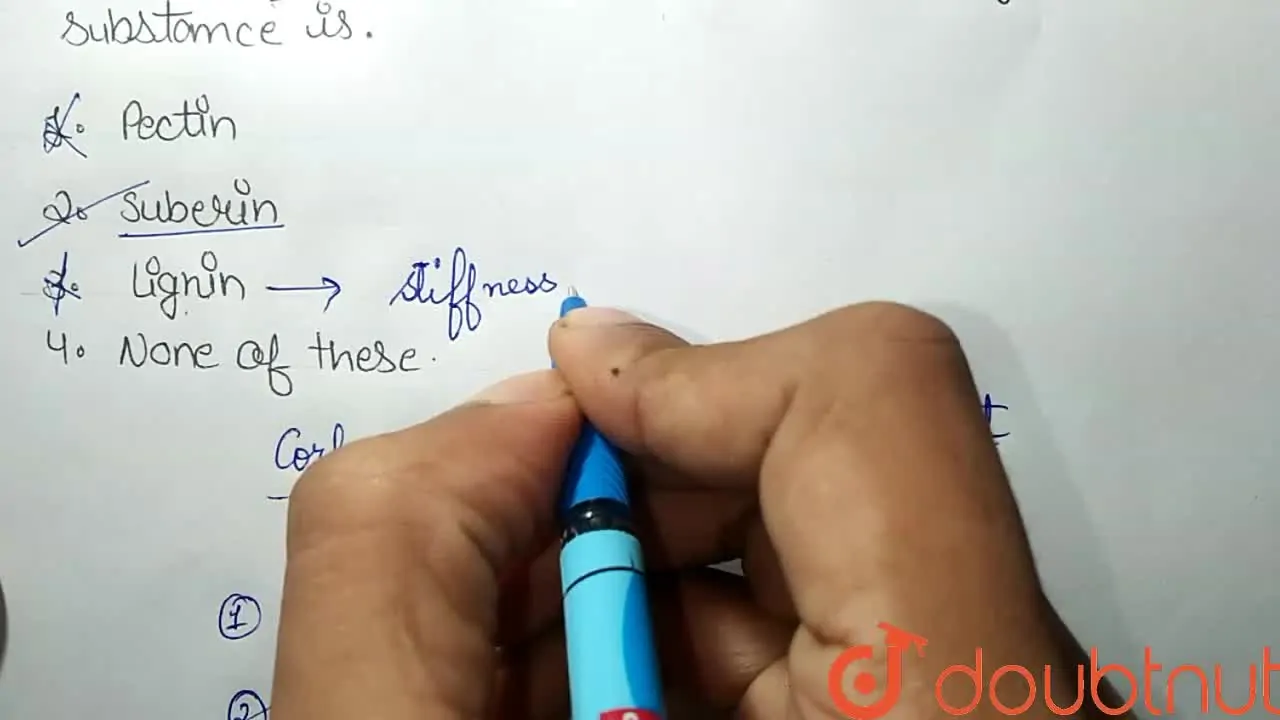 substance is.
1. Pectin
2. Suberin
3. Lignin → stiffness
4. None of these.
1
2
doubtnut